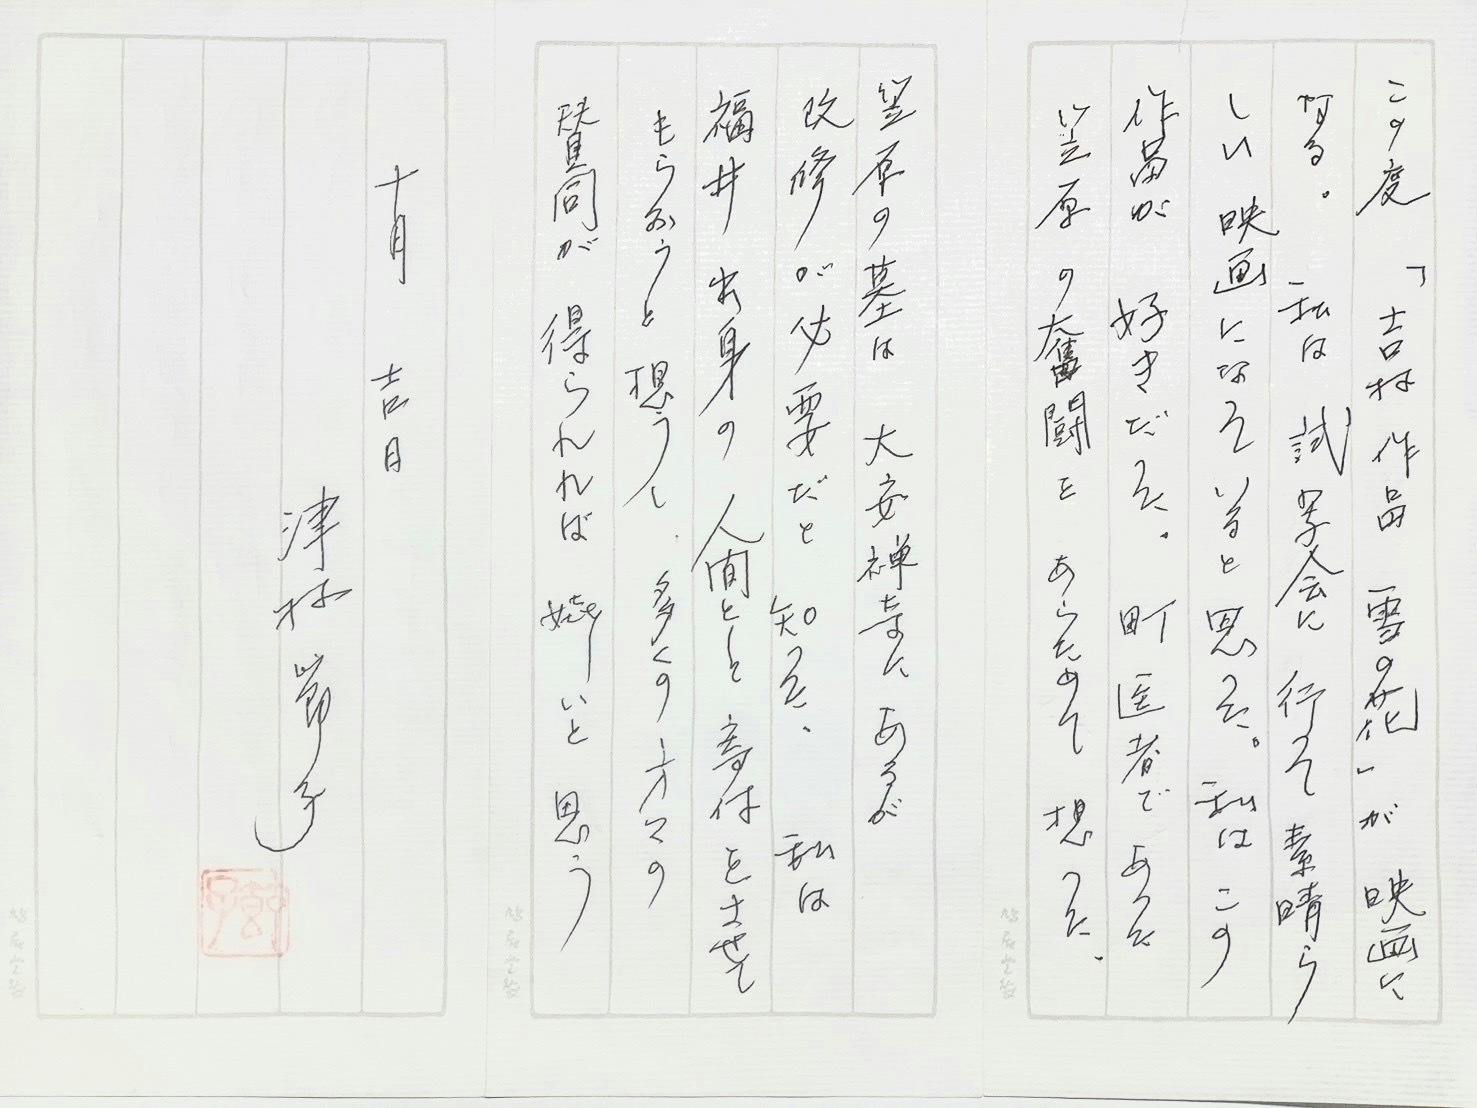 この度 「吉村作品 雪の花」が 映画に
なる。 私は 試写会に 行って 素晴ら
しい 映画になっていると 思った。 私は この
作品が 好きだった。 町医者で あった
笠原の奮闘を あらためて 想った。
笠原の墓は 大安禅寺に あるが
改修が必要だと 知った、 私は
福井出身の 人間として 寄付をさせて
もらおうと 想うし、 多くの 方々の
賛同が 得られれば 嬉しいと 思う
十月 吉日
津村 節子